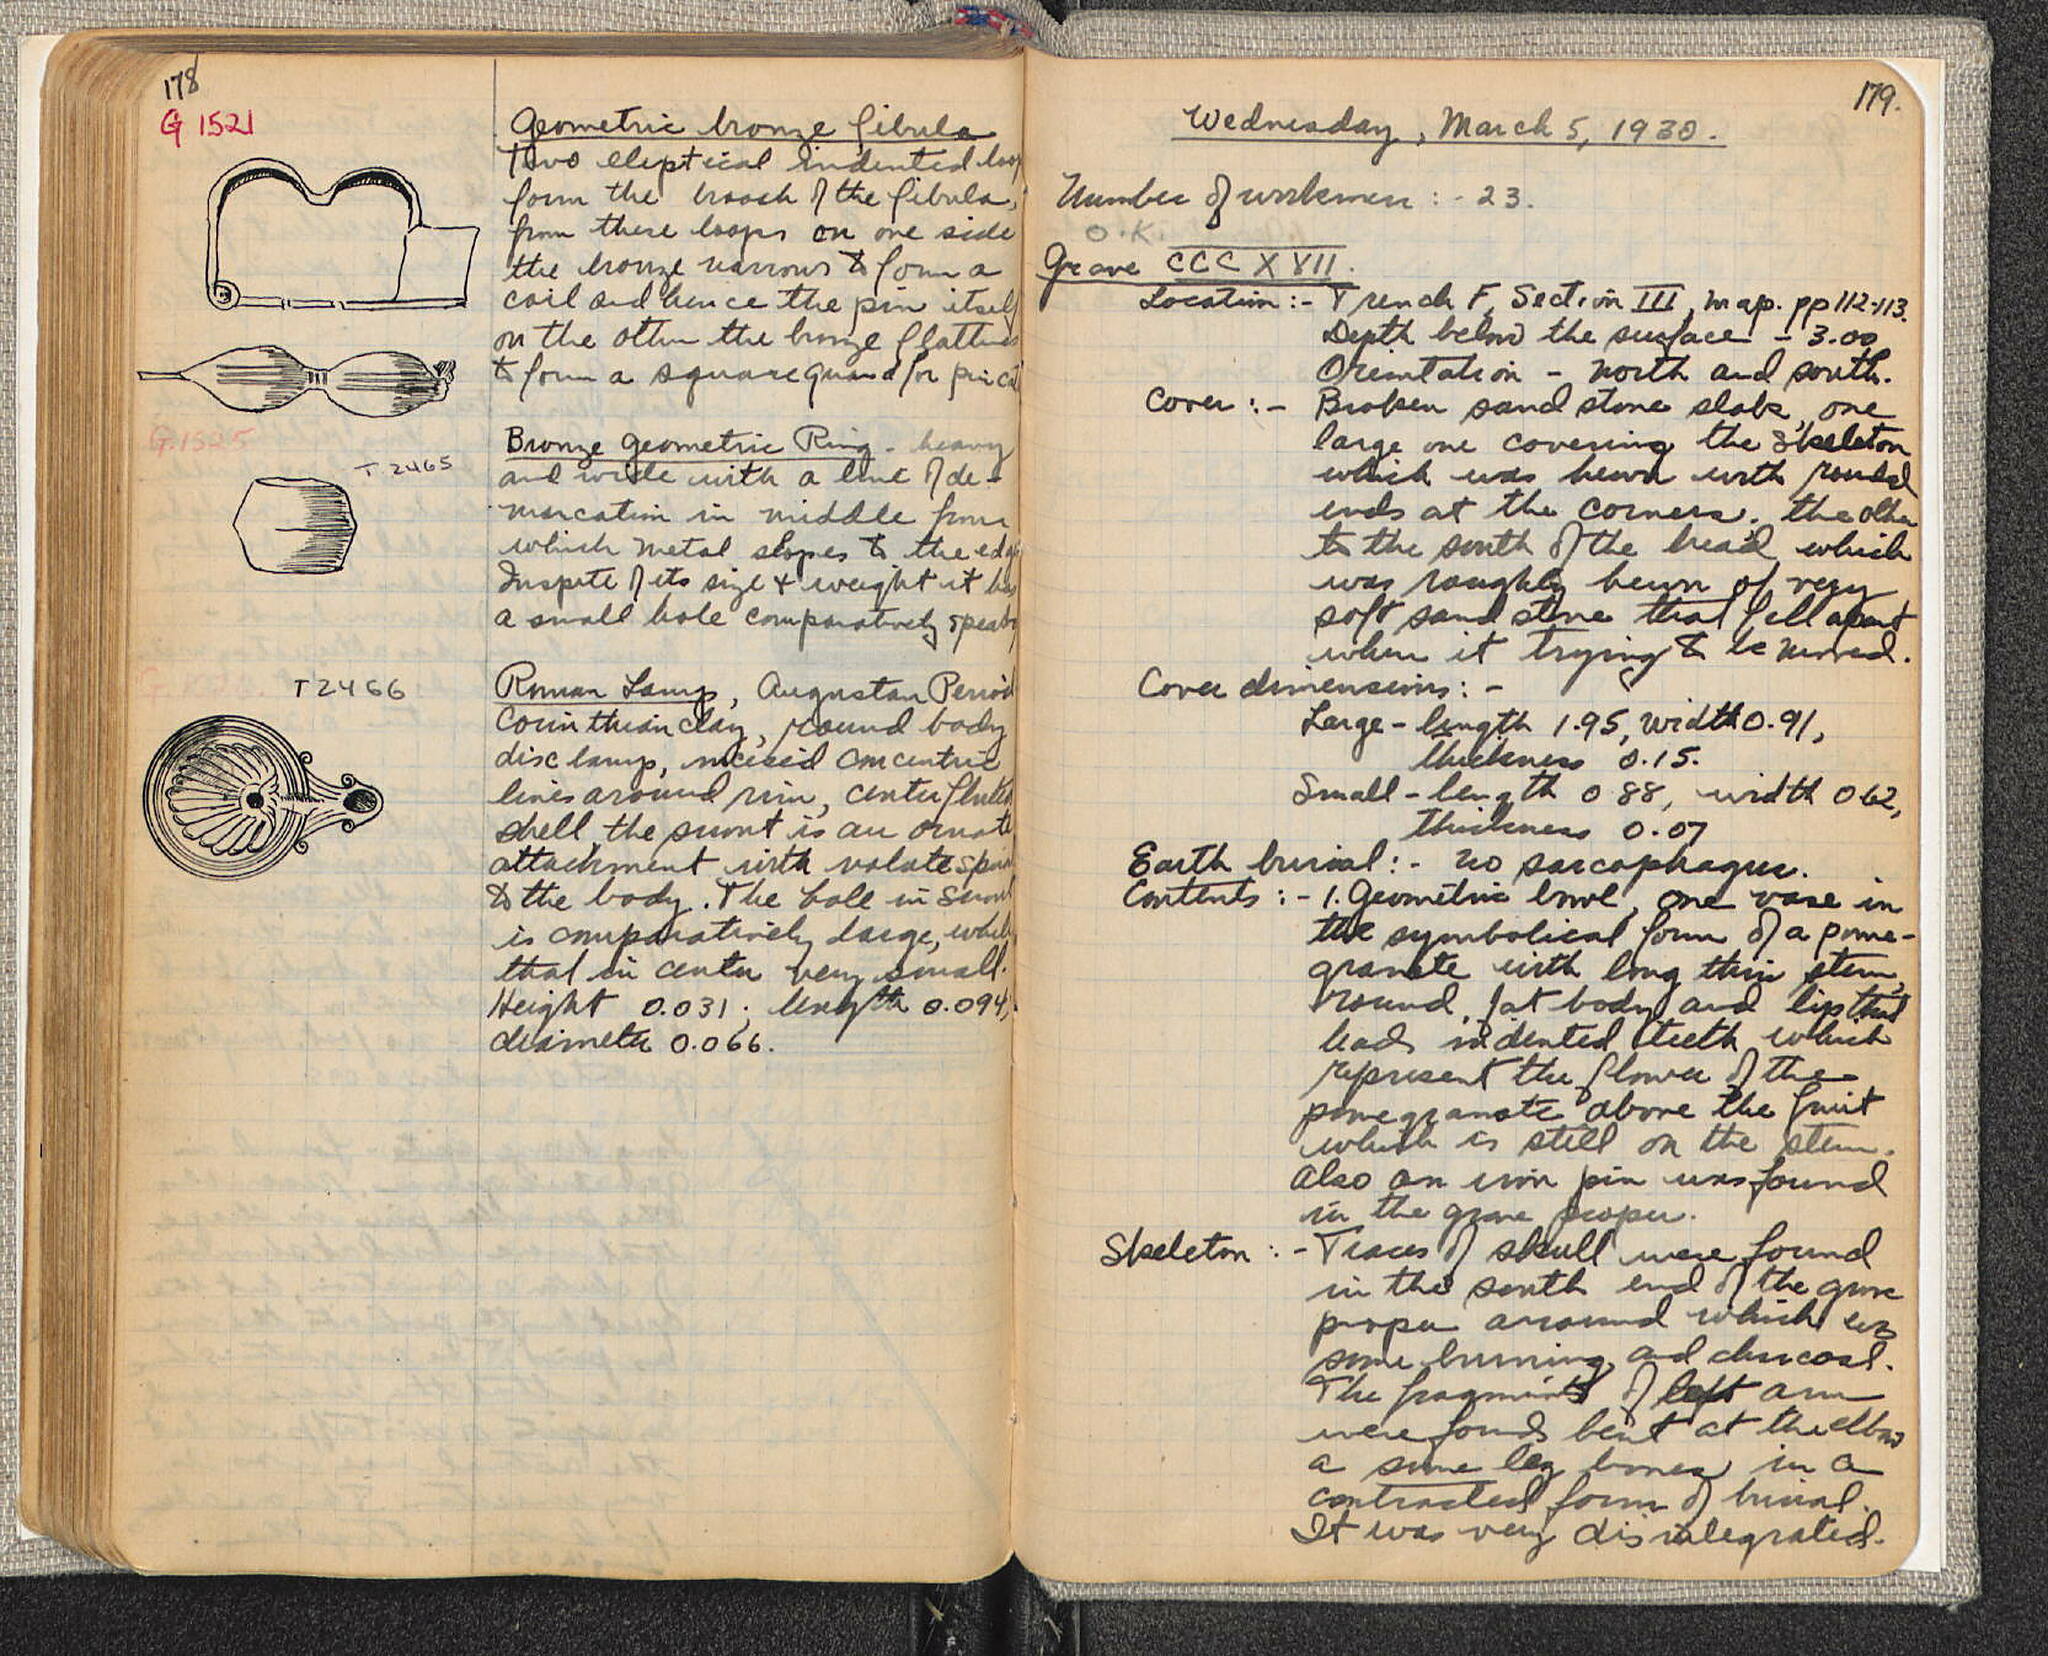 178
G 1521
Geometric bronze fibula
Two eliptical indented loop
form the broach of the fibula,
from these loops on one side
the bronze narrows to form a
coil and hence the pin itself
on the other the bronze flattens
to form a square guard for pin
G.1525
T. 2465
Bronze Geometric Ring - heavy
and wide with a line of de-
marcation in middle from
which metal slopes to the edge
Inspite of its size + weight it has
a small hole comparatively
T 2466
Roman Lamp, Augustan Period
Corinthian clay, round body
disc lamp, incised concentric
lines around rim, center fluted
shell, the snout is an ornate
attachment with volute
to the body. The hole in snout
is comparatively large, while
that in center very small.
Height 0.031; length 0.094,
diameter 0.066.
179.
Wednesday, March 5, 1930.
Number of workmen :- 23.
O.K.
Grave CCCXVII.
Location :- Trench F, Section III, map. pp 112-113.
Depth below the surface - 3.00
Orientation - North and south.
Cover :- Broken sand stone slabs, one
large one covering the skeleton
which was hewn with round
ends at the corners. the other
to the south of the head which
was roughly hewn of very
soft sand stone that fell apart
when it trying to be moved.
Cover dimensions :-
Large - length 1.95, width 0.91,
thickness 0.15.
Small - length 0.88, width 0.62,
thickness 0.07
Earth burial :- no sarcophagus.
Contents :- 1. Geometric bowl, one vase in
the symbolical form of a pome-
granate with long thin stem,
round, fat body and lip that
leads indented teeth which
represent the flower of the
pomegranate above the fruit
which is still on the stem.
Also an iron pin was found
in the grave proper.
Skeleton :- Traces of skull were found
in the south end of the grave
proper arround which was
some burning and charcoal.
The fragments of left arm
were found bent at the elbow
a some leg bones in a
contracted form of burial.
It was very disintegrated.